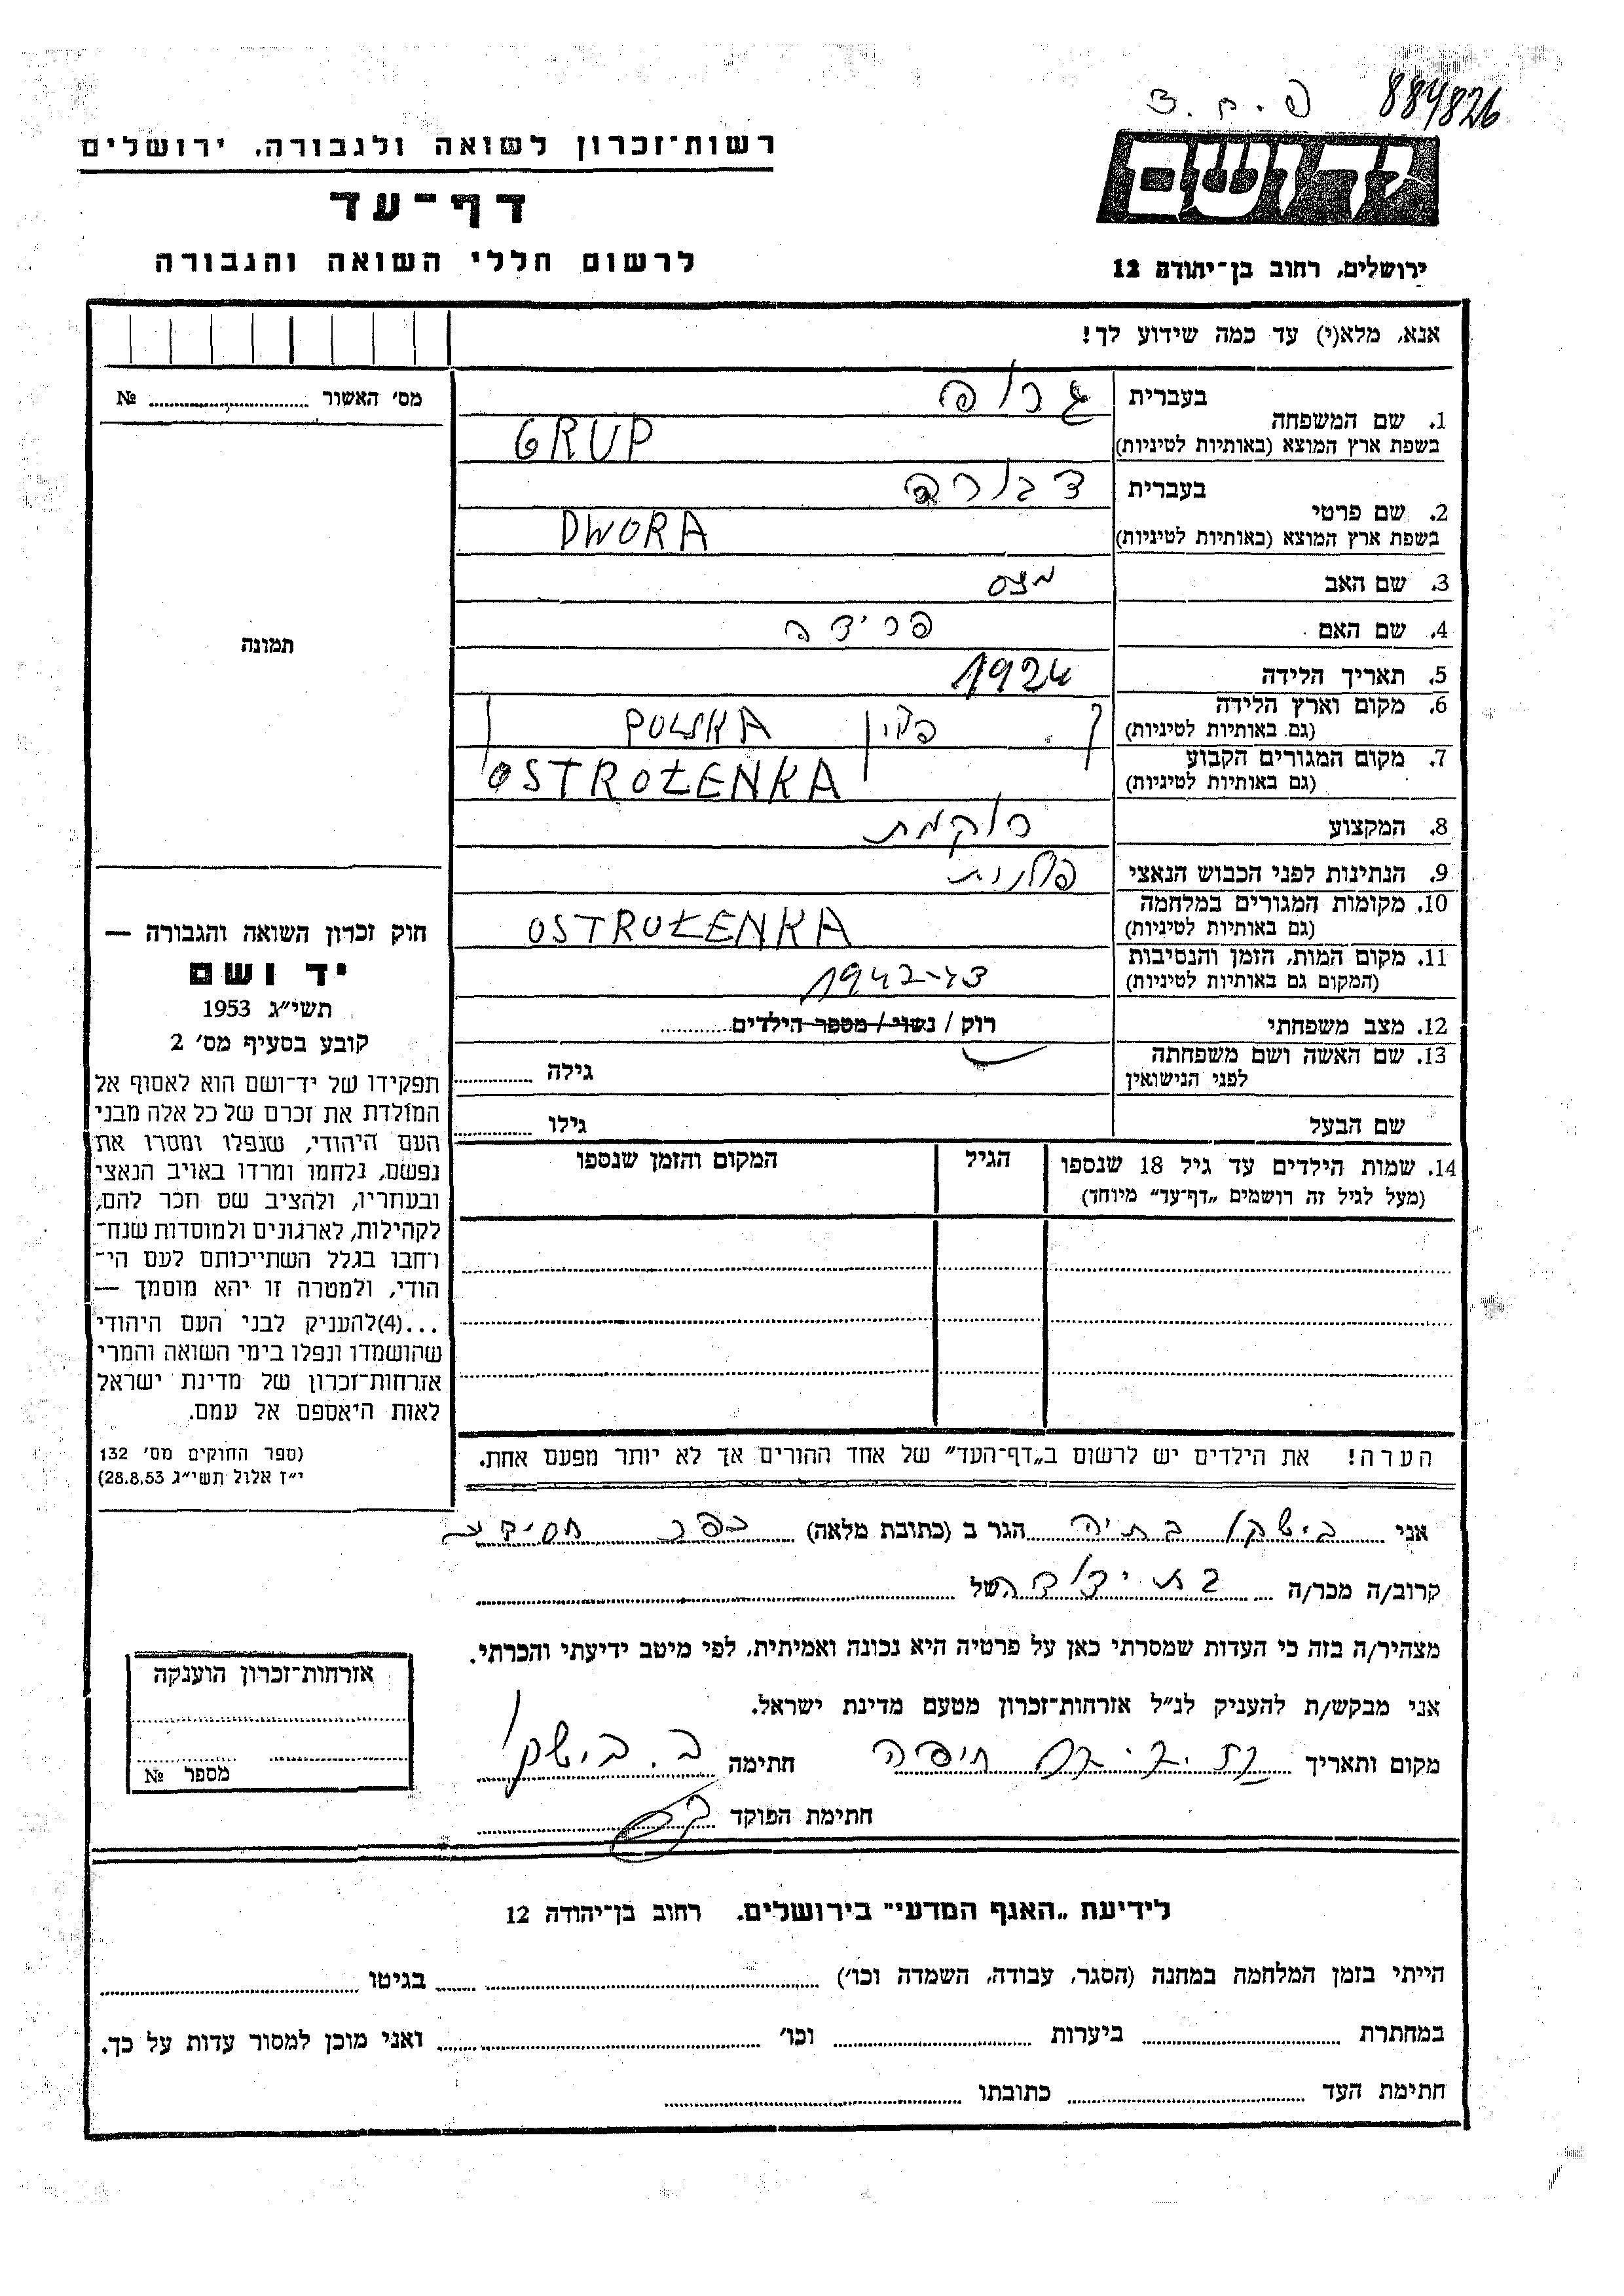 פ.ח.צ 884826
יד ושם
רשות־זכרון לשואה ולגבורה, ירושלים
דף־עד
ירושלים, רחוב בן־יהודה 12
לרשום חללי השואה והגבורה
אנא, מלא(י) עד כמה שידוע לך!
מס׳ האשור ........ №
תמונה
1. שם המשפחה בעברית גרופ
בשפת ארץ המוצא (באותיות לטיניות) GRUP
2. שם פרטי בעברית דבורה
בשפת ארץ המוצא (באותיות לטיניות) DWORA
3. שם האב
4. שם האם פרידה
5. תאריך הלידה 1924
6. מקום וארץ הלידה
(גם באותיות לטיניות) POLSKA
7. מקום המגורים הקבוע
(גם באותיות לטיניות) OSTROŁENKA
8. המקצוע רוקמת
9. הנתינות לפני הכבוש הנאצי פולנית
10. מקומות המגורים במלחמה
(גם באותיות לטיניות) OSTROŁENKA
11. מקום המות, הזמן והנסיבות
(המקום גם באותיות לטיניות) 1942-43
12. מצב משפחתי רוק / נשוי / מספר הילדים........
13. שם האשה ושם משפחתה
לפני הנישואין גילה ........
שם הבעל גילו ........
14. שמות הילדים עד גיל 18 שנספו הגיל המקום והזמן שנספו
(מעל לגיל זה רושמים „דף־עד״ מיוחד)
הערה! את הילדים יש לרשום ב„דף־העד״ של אחד ההורים אך לא יותר מפעם אחת.
חוק זכרון השואה והגבורה —
יד ושם
תשי״ג 1953
קובע בסעיף מס׳ 2
תפקידו של יד־ושם הוא לאסוף אל
המולדת את זכרם של כל אלה מבני
העם היהודי, שנפלו ומסרו את
נפשם, נלחמו ומרדו באויב הנאצי
ובעוזריו, ולהציב שם וזכר להם,
לקהילות, לארגונים ולמוסדות שנח־
רחבו בגלל השתייכותם לעם הי־
הודי, ולמטרה זו יהא מוסמך —
...(4)להעניק לבני העם היהודי
שהושמדו ונפלו בימי השואה והמרי
אזרחות־זכרון של מדינת ישראל
לאות היאספם אל עמם.
(ספר החוקים מס׳ 132
י״ז אלול תשי״ג 28.8.53)
אני בישקו בתיה הגר ב (כתובת מלאה) כפר חסידים
קרוב/ה מכר/ה בת דודה של
מצהיר/ה בזה כי העדות שמסרתי כאן על פרטיה היא נכונה ואמיתית, לפי מיטב ידיעתי והכרתי.
אני מבקש/ת להעניק לנ״ל אזרחות־זכרון מטעם מדינת ישראל.
מקום ותאריך חיפה חתימה ב. בישקו
חתימת הפוקד
אזרחות־זכרון הוענקה
מספר №
לידיעת „האגף המדעי״ בירושלים. רחוב בן־יהודה 12
הייתי בזמן המלחמה במחנה (הסגר, עבודה, השמדה וכו׳) ........ בגיטו ........
במחתרת ........ ביערות ........ וכו׳ ........ ואני מוכן למסור עדות על כך.
חתימת העד ........ כתובתו ........